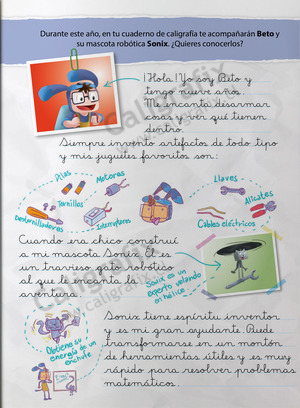 Durante este año, en tu cuaderno de caligrafía te acompañarán Beto y
su mascota robótica Sonix. ¿Quieres conocerlos?
¡Hola! Yo soy Beto y
tengo nueve años.
Me encanta desarmar
cosas y ver qué tienen
dentro.
Siempre invento artefactos de todo tipo
y mis juguetes favoritos son:
Pilas
Motores
Llaves
Tornillos
Alicates
Destornilladores
Interruptores
Cables eléctricos
Cuando era chico construí
a mi mascota Sonix. Él es
un travieso gato robótico
al que le encanta la
aventura.
Sonix es un
experto volando
en hélice.
Sonix tiene espíritu inventor
y es mi gran ayudante. Puede
transformarse en un montón
de herramientas útiles y es muy
rápido para resolver problemas
matemáticos.
Obtiene su
energía de un
enchufe.
Caligrafix